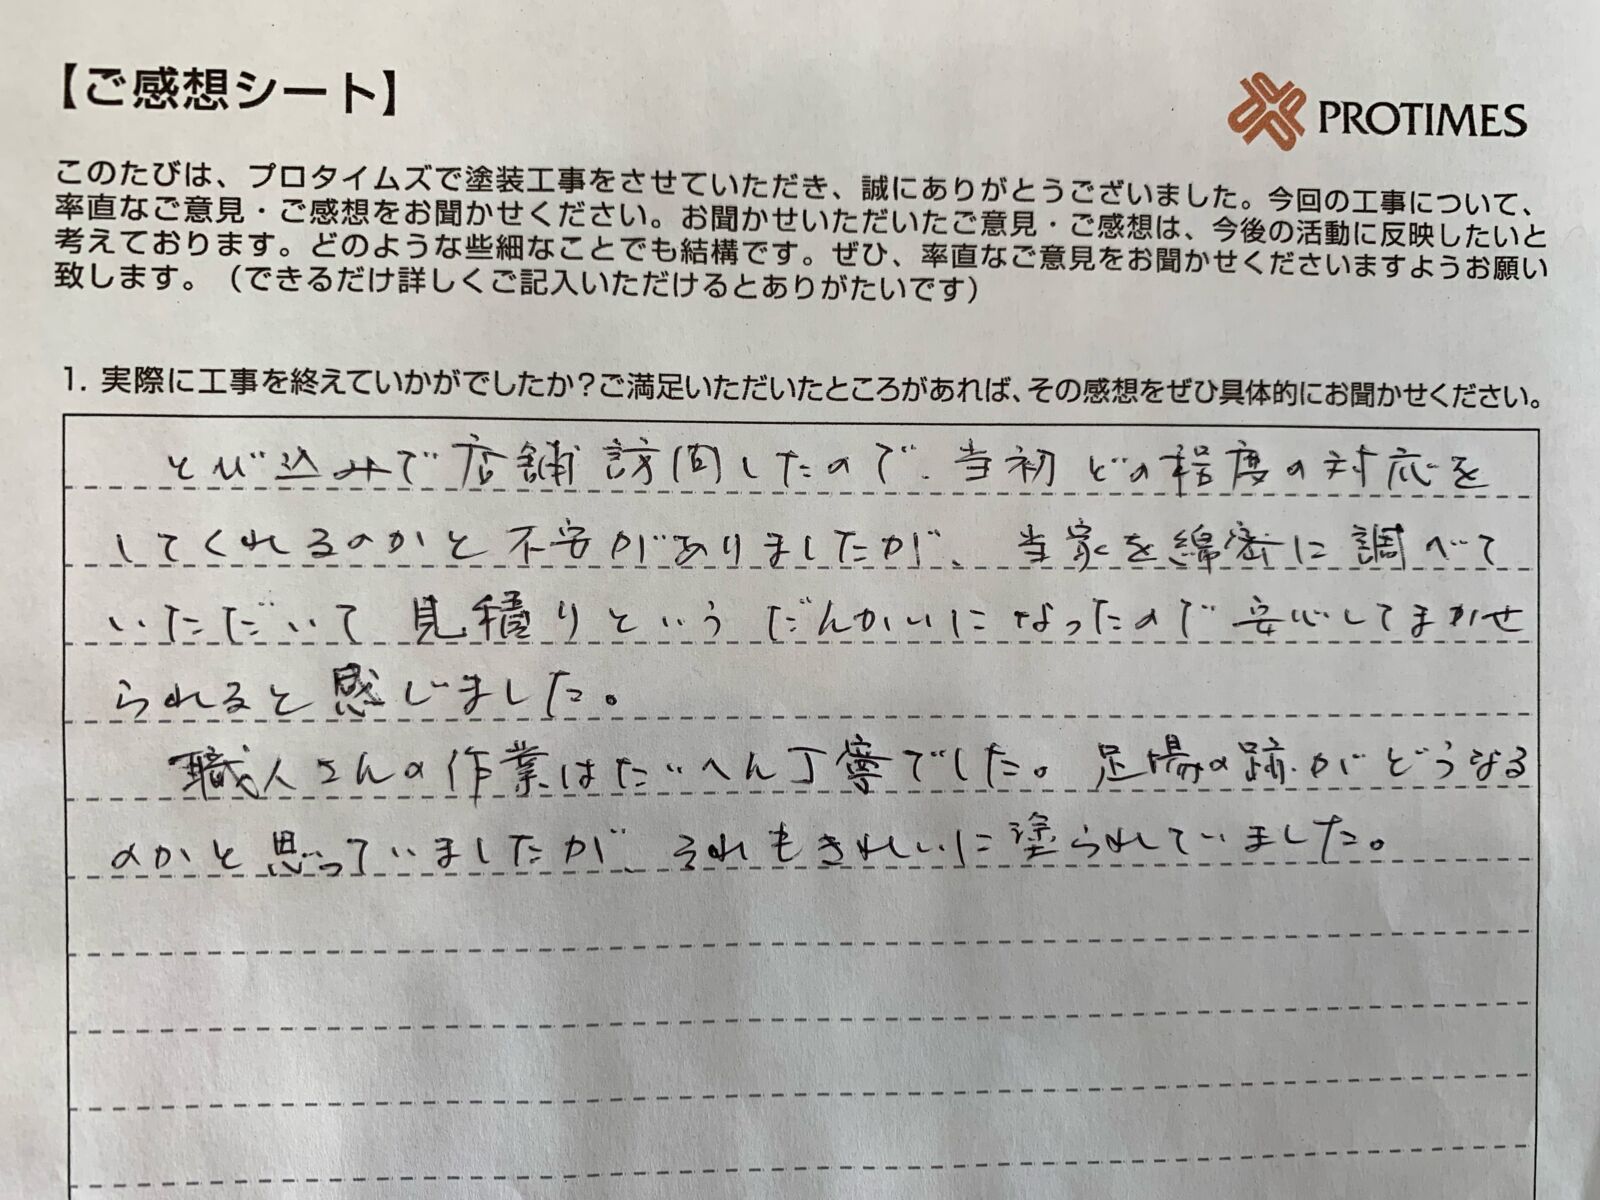 【ご感想シート】
PROTIMES
このたびは、プロタイムズで塗装工事をさせていただき、誠にありがとうございました。今回の工事について、
率直なご意見・ご感想をお聞かせください。お聞かせいただいたご意見・ご感想は、今後の活動に反映したいと
考えております。どのような些細なことでも結構です。ぜひ、率直なご意見をお聞かせくださいますようお願い
致します。（できるだけ詳しくご記入いただけるとありがたいです）
1. 実際に工事を終えていかがでしたか？ご満足いただいたところがあれば、その感想をぜひ具体的にお聞かせください。
とび込みで店舗訪問したので、当初どの程度の対応を
してくれるのかと不安がありましたが、当家を綿密に調べて
いただいて見積りというだんかいになったので安心してまかせ
られると感じました。
職人さんの作業はたいへん丁寧でした。足場の跡がどうなる
のかと思っていましたが、それもきれいに塗られていました。